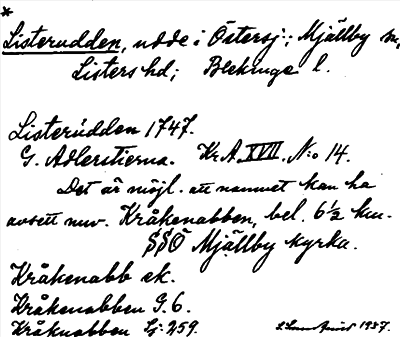 *
Listerudden, udde i Östersj.; Mjällby sn,
Listers hd; Blekinge l.
Listerudden 1747.
G. Adlerstierna. Kr.A. XVII. N:o 14.
Det är möjl. att namnet kan ha
avsett nuv. Kråkenabben, bel. 6 1/2 km.
SSÖ Mjällby kyrka.
Kråkenabb ek.
Kråkenabben G. 6.
Kråknabben Lj: 259.
1937.